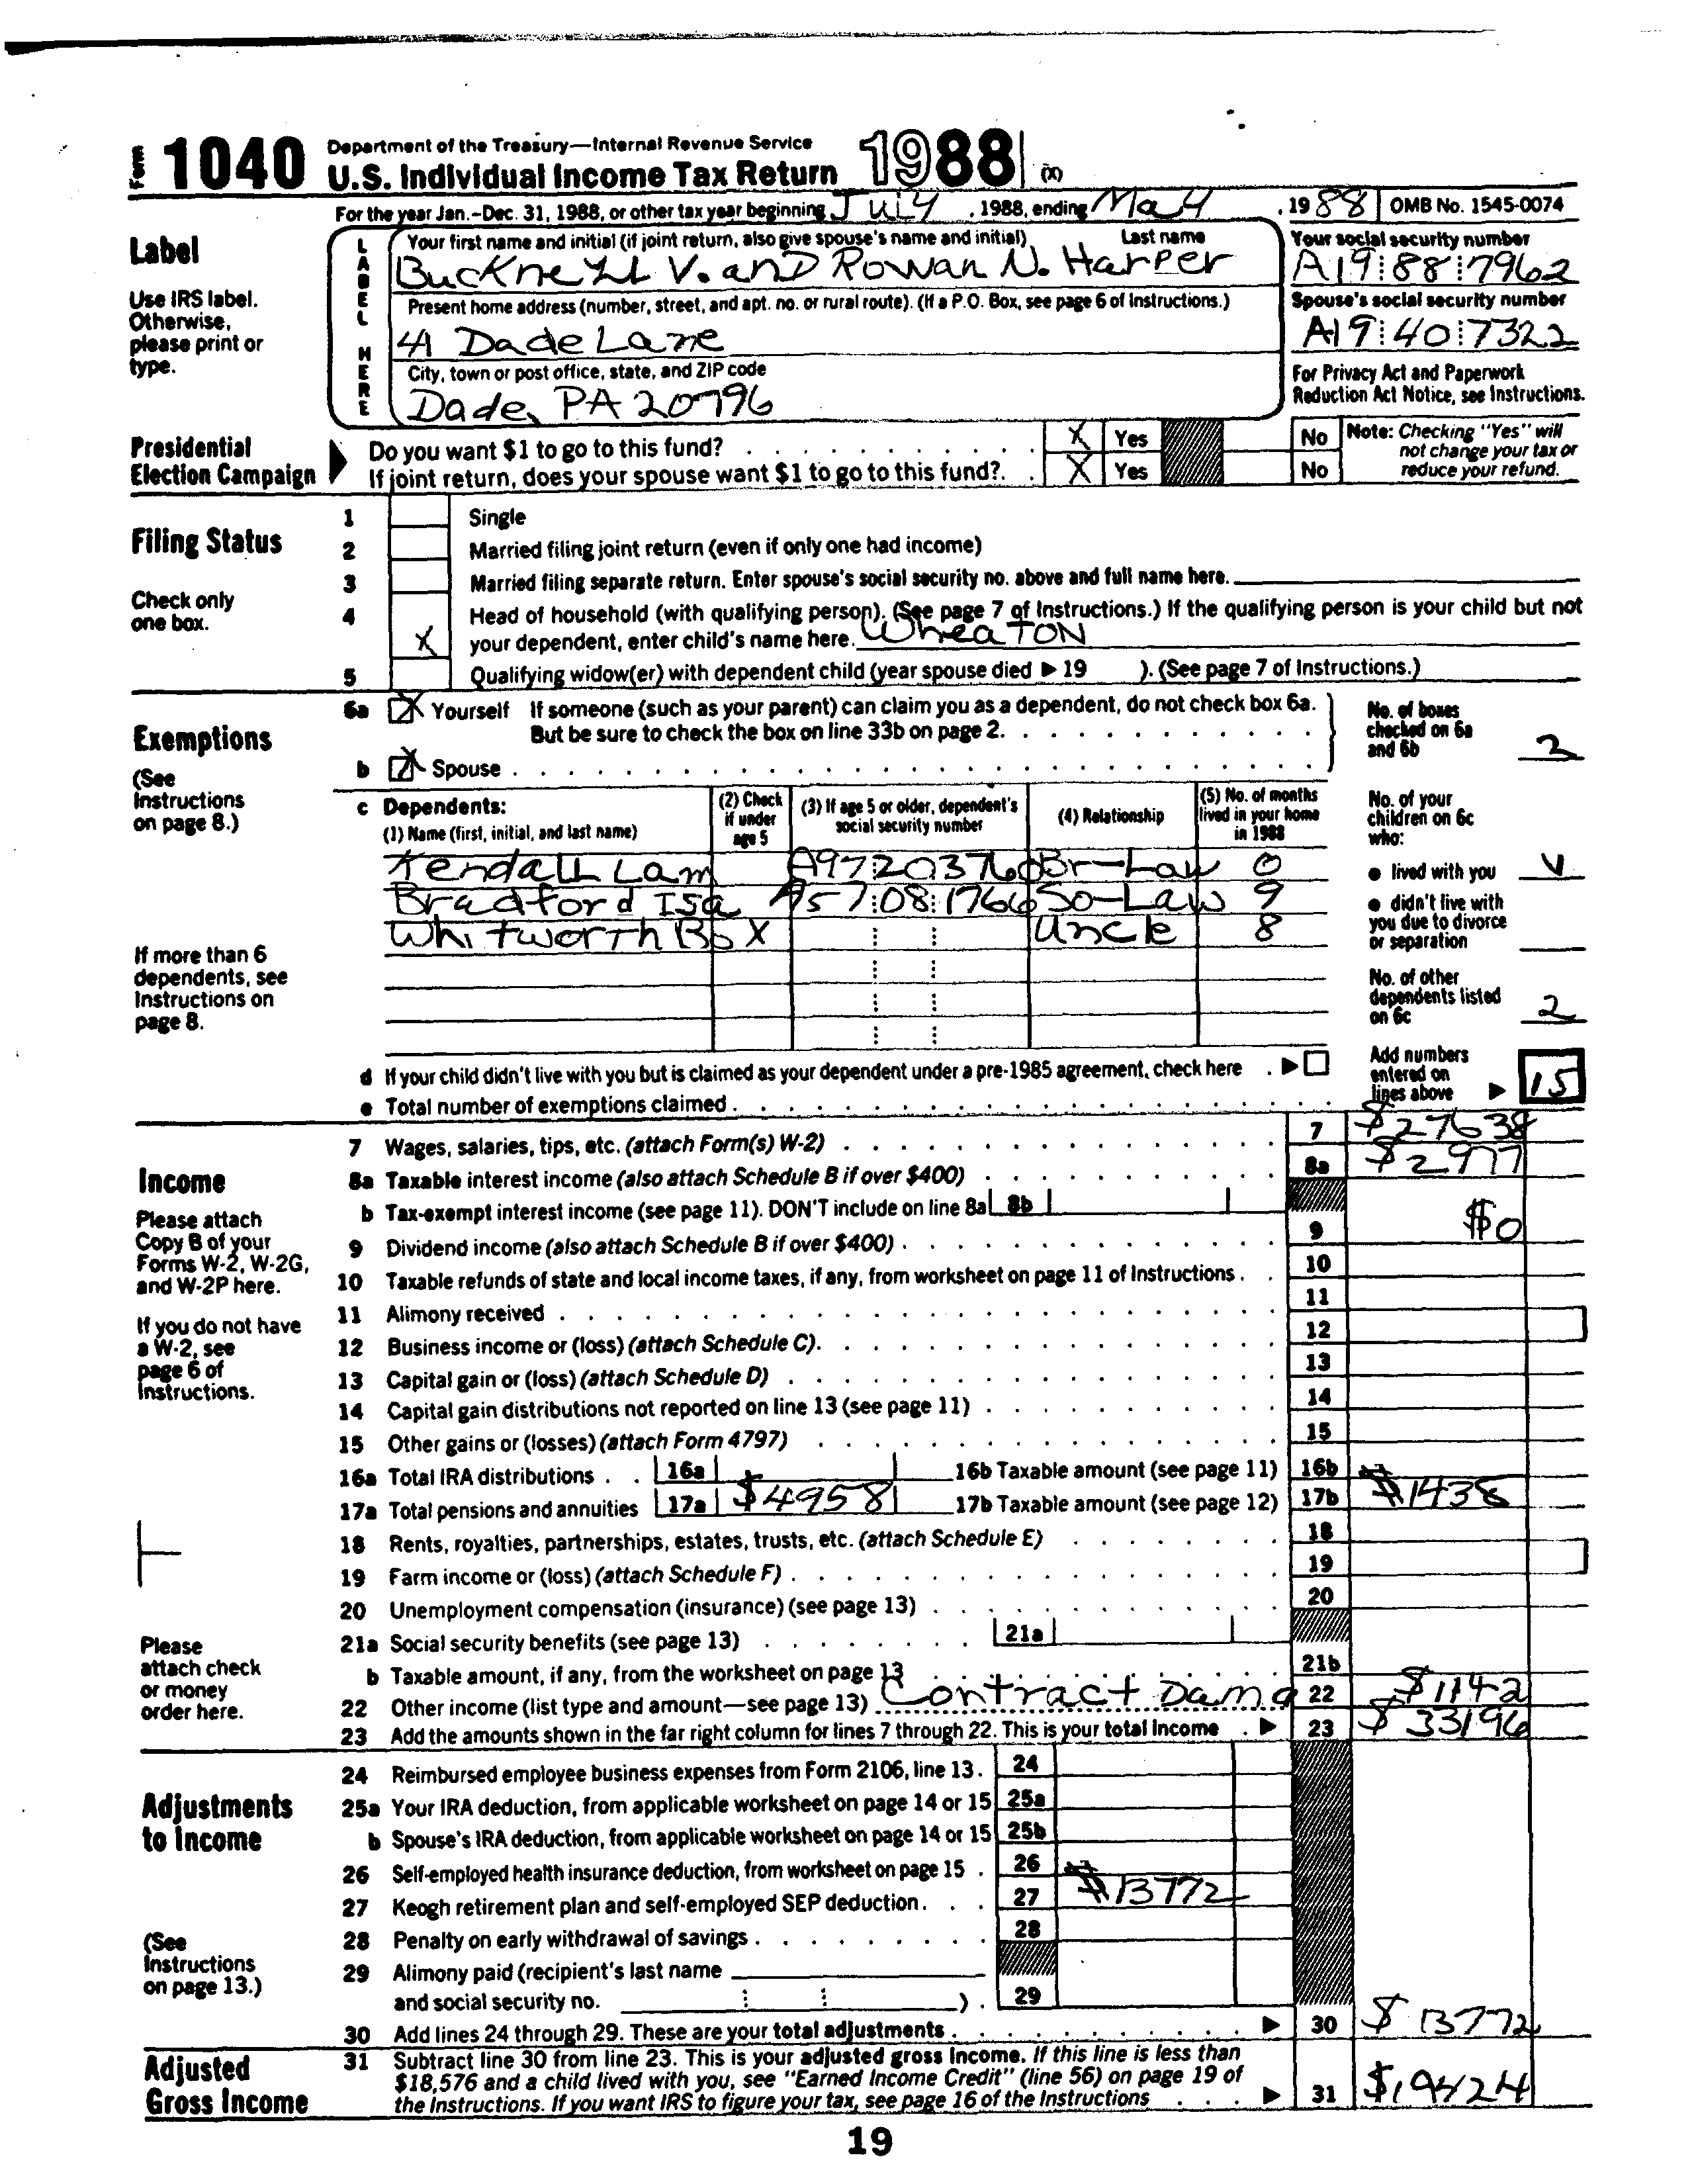 Form 1040 Department of the Treasury—Internal Revenue Service
U.S. Individual Income Tax Return 1988 (X)
For the year Jan.-Dec. 31, 1988, or other tax year beginning July , 1988, ending May , 19 88 OMB No. 1545-0074
Label
Use IRS label. Otherwise, please print or type.
LABEL HERE
Your first name and initial (if joint return, also give spouse's name and initial) Last name
Bucknell V. and Rowan N. Harper
Your social security number
A19:88:7962
Present home address (number, street, and apt. no. or rural route). (If a P.O. Box, see page 6 of Instructions.)
41 Dade Lane
Spouse's social security number
A19:40:7322
City, town or post office, state, and ZIP code
Dade, PA 20796
For Privacy Act and Paperwork Reduction Act Notice, see Instructions.
Presidential Election Campaign
Do you want $1 to go to this fund? X Yes No
If joint return, does your spouse want $1 to go to this fund? X Yes No
Note: Checking "Yes" will not change your tax or reduce your refund.
Filing Status
Check only one box.
1 Single
2 Married filing joint return (even if only one had income)
3 Married filing separate return. Enter spouse's social security no. above and full name here.
4 X Head of household (with qualifying person). (See page 7 of Instructions.) If the qualifying person is your child but not
your dependent, enter child's name here. Wheaton
5 Qualifying widow(er) with dependent child (year spouse died ▶ 19 ). (See page 7 of Instructions.)
Exemptions
(See Instructions on page 8.)
6a X Yourself If someone (such as your parent) can claim you as a dependent, do not check box 6a.
But be sure to check the box on line 33b on page 2.
b X Spouse
No. of boxes checked on 6a and 6b 2
c Dependents:
(1) Name (first, initial, and last name) (2) Check if under age 5 (3) If age 5 or older, dependent's social security number (4) Relationship (5) No. of months lived in your home in 1988
Kendall Lam A97203760 Br-Law 0
Bradford Isa A57:08:1766 So-Law 9
Whitworth Bo X Uncle 8
If more than 6 dependents, see Instructions on page 8.
No. of your children on 6c who:
● lived with you
● didn't live with you due to divorce or separation
No. of other dependents listed on 6c 2
d If your child didn't live with you but is claimed as your dependent under a pre-1985 agreement, check here ▶
e Total number of exemptions claimed
Add numbers entered on lines above ▶ 15
Income
Please attach Copy B of your Forms W-2, W-2G, and W-2P here.
If you do not have a W-2, see page 6 of Instructions.
7 Wages, salaries, tips, etc. (attach Form(s) W-2) 7 $27638
8a Taxable interest income (also attach Schedule B if over $400) 8a $2977
b Tax-exempt interest income (see page 11). DON'T include on line 8a 8b
9 Dividend income (also attach Schedule B if over $400) 9 $0
10 Taxable refunds of state and local income taxes, if any, from worksheet on page 11 of Instructions. 10
11 Alimony received 11
12 Business income or (loss) (attach Schedule C). 12
13 Capital gain or (loss) (attach Schedule D) 13
14 Capital gain distributions not reported on line 13 (see page 11) 14
15 Other gains or (losses) (attach Form 4797) 15
16a Total IRA distributions 16a 16b Taxable amount (see page 11) 16b
17a Total pensions and annuities 17a $4958 17b Taxable amount (see page 12) 17b $1438
18 Rents, royalties, partnerships, estates, trusts, etc. (attach Schedule E) 18
19 Farm income or (loss) (attach Schedule F) 19
20 Unemployment compensation (insurance) (see page 13) 20
21a Social security benefits (see page 13) 21a
b Taxable amount, if any, from the worksheet on page 13 21b
Please attach check or money order here.
22 Other income (list type and amount—see page 13) Contract Damg 22 $1142
23 Add the amounts shown in the far right column for lines 7 through 22. This is your total income ▶ 23 $33196
Adjustments to Income
(See Instructions on page 13.)
24 Reimbursed employee business expenses from Form 2106, line 13. 24
25a Your IRA deduction, from applicable worksheet on page 14 or 15 25a
b Spouse's IRA deduction, from applicable worksheet on page 14 or 15 25b
26 Self-employed health insurance deduction, from worksheet on page 15 26
27 Keogh retirement plan and self-employed SEP deduction 27 $13772
28 Penalty on early withdrawal of savings 28
29 Alimony paid (recipient's last name
and social security no. ) 29
30 Add lines 24 through 29. These are your total adjustments ▶ 30 $13772
Adjusted Gross Income
31 Subtract line 30 from line 23. This is your adjusted gross income. If this line is less than
$18,576 and a child lived with you, see "Earned Income Credit" (line 56) on page 19 of
the Instructions. If you want IRS to figure your tax, see page 16 of the Instructions ▶ 31 $19424
19